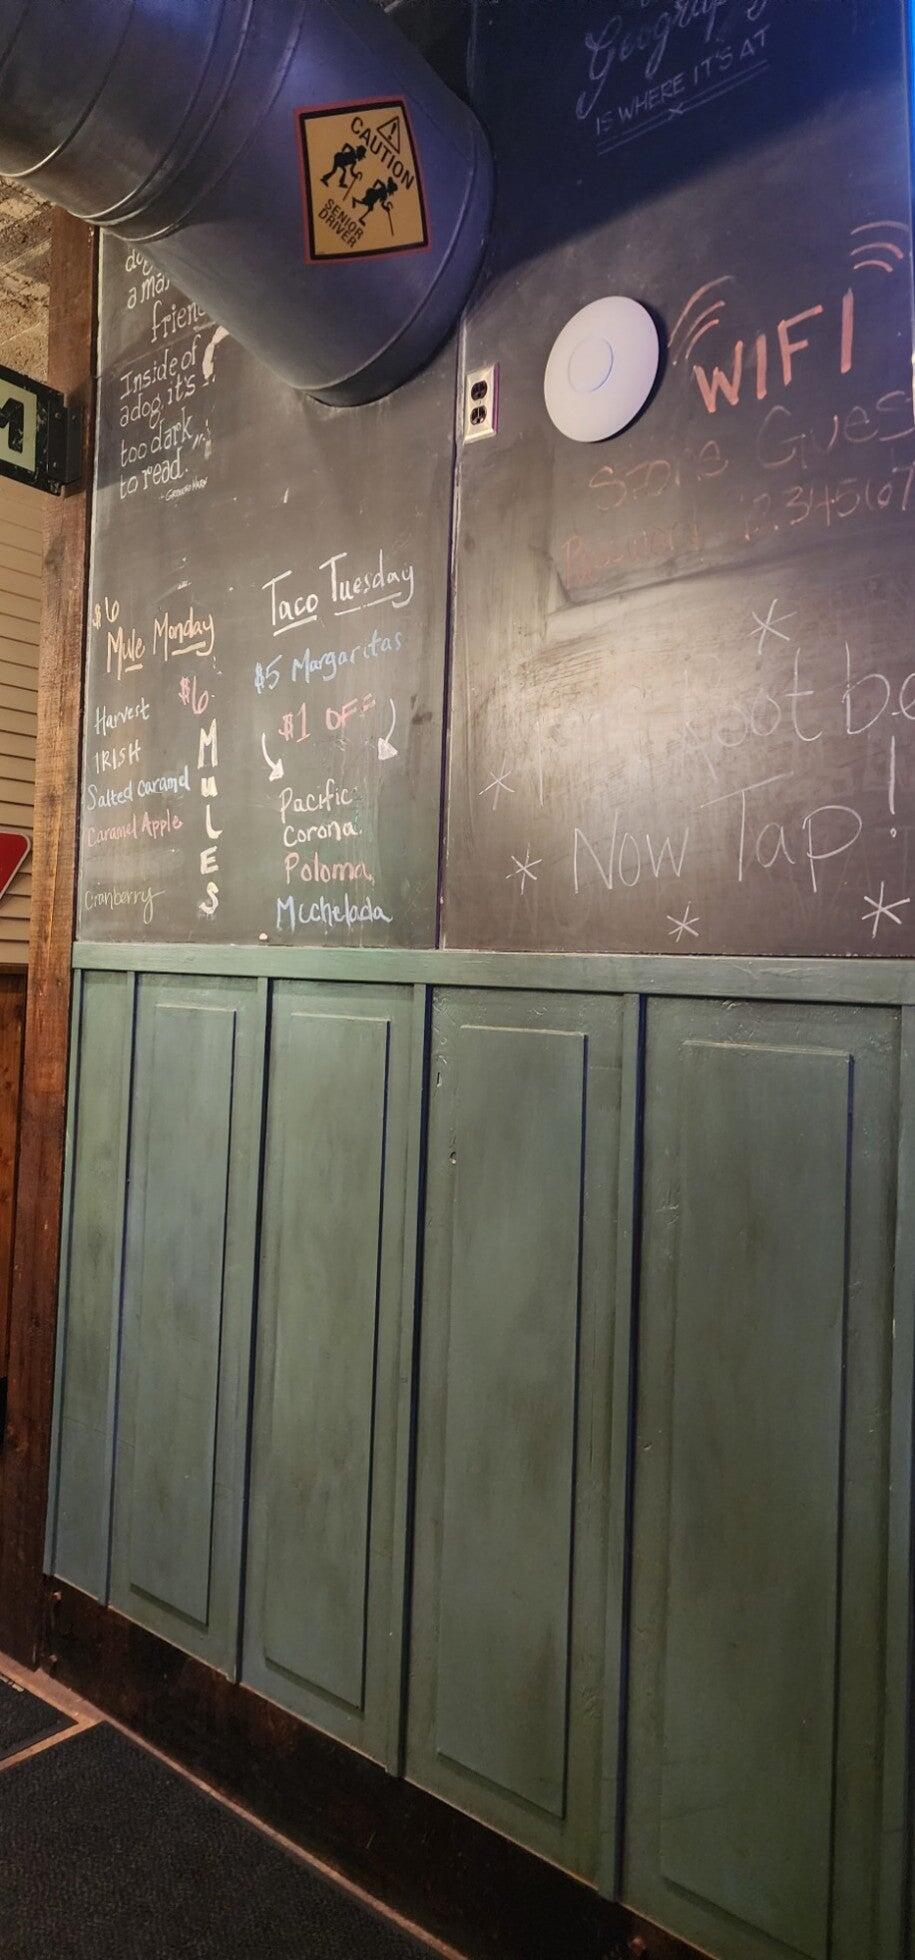 Geography
IS WHERE IT'S AT
CAUTION
SENIOR
DRIVER
a man
friend
Inside of
a dog it's
too dark
to read.
- Groucho Marx
M
WIFI
Store Guest
Password 1234567
$6
Mule Monday
$6
Harvest
IRISH
Salted Caramel
Caramel Apple
Cranberry
MULES
Taco Tuesday
$5 Margaritas
$1 OFF
Pacific
Corona
Poloma
Michelada
Root be
Now Tap!